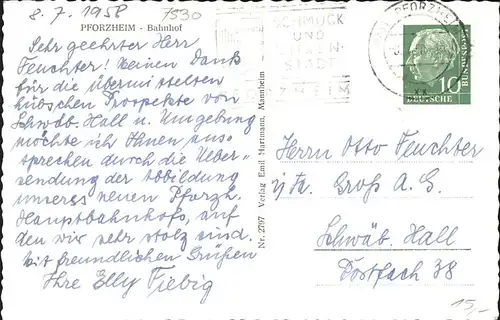 8. 7. 1958
7530
PFORZHEIM - Bahnhof
Sehr geehrter Herr
Feuchter! Meinen Dank
für die übermittelten
hübschen Prospekte von
Schwäb. Hall u. Umgebung
möchte ich Ihnen aus-
sprechen durch die Ueber-
sendung der Abbildung
unseres neuen Pforzh.
Hauptbahnhofs, auf
den wir sehr stolz sind.
Mit freundlichen Grüßen
Ihre Elly Fiebig
Nr. 2797 Verlag Emil Hartmann, Mannheim
SCHMUCK
UND
STADT
PFORZHEIM
PFORZHEIM
10
DEUTSCHE
BUNDESPOST
Herrn Otto Feuchter
i/Fa. Groß A.G.
Schwäb. Hall
Postfach 38
15,-